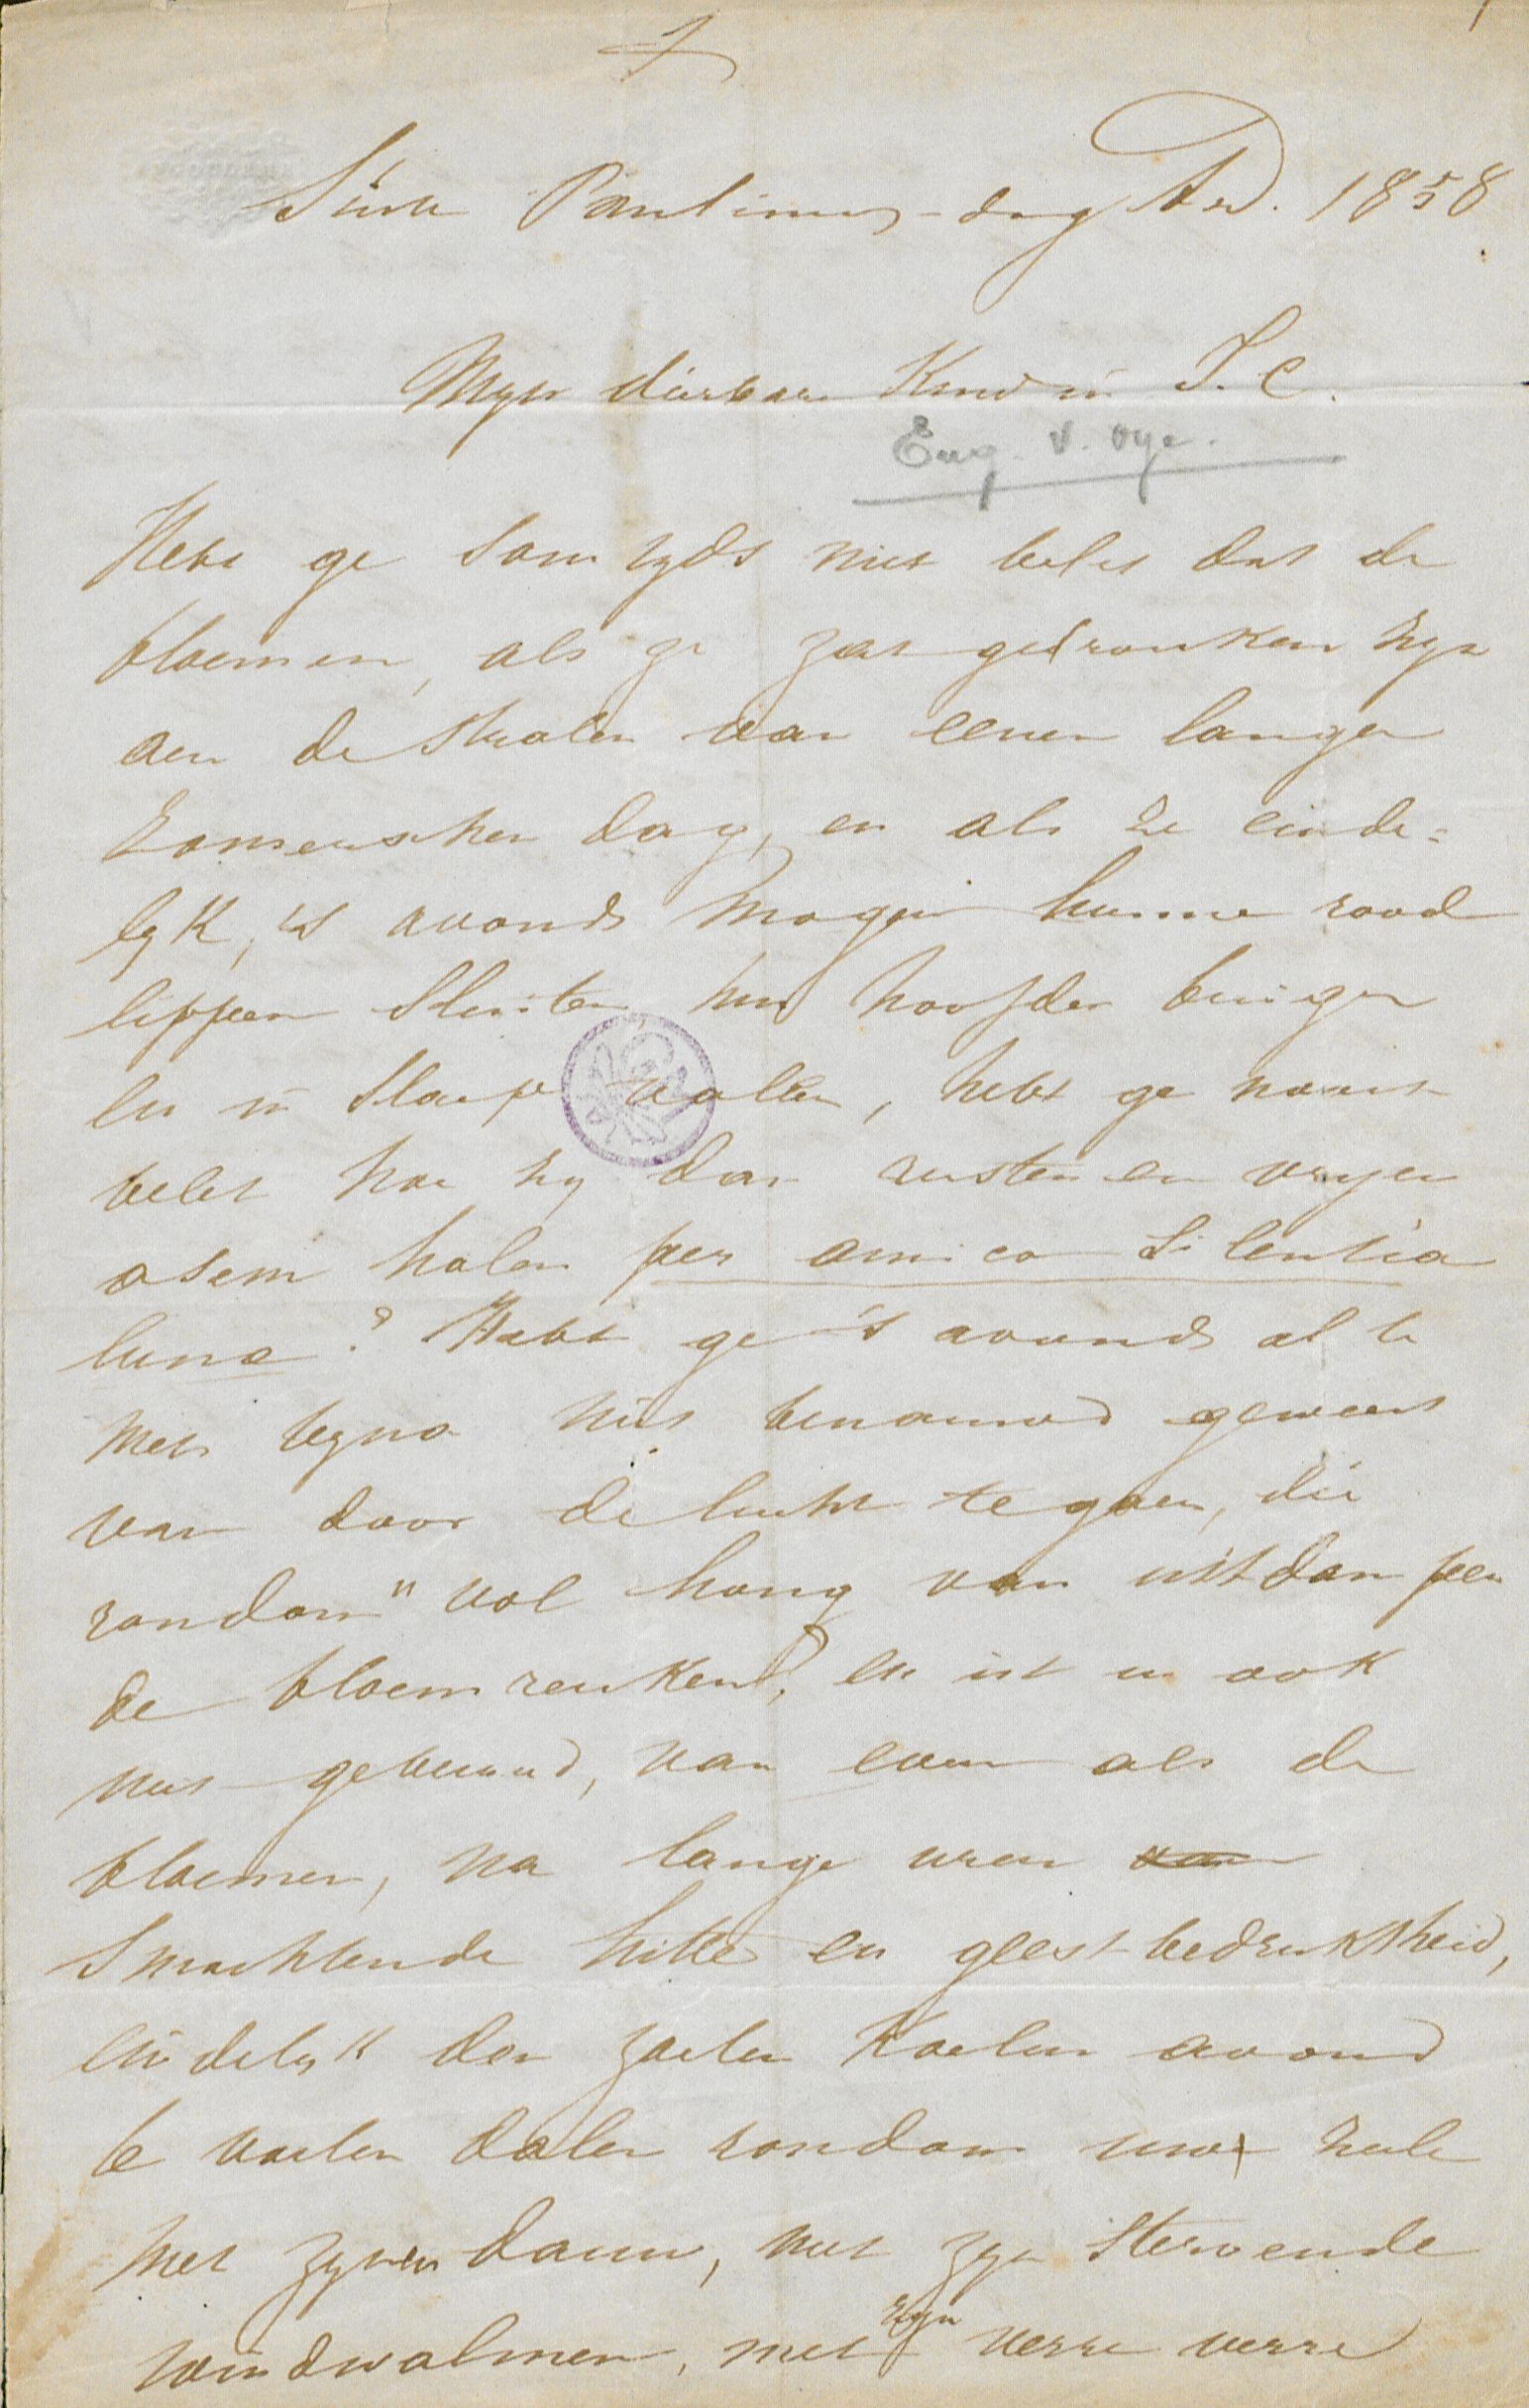 Sinte Paulinus-dag AD. 1858
Myn dierbare Kind in J. C.
Eug. v. Oye.
Hebt ge somtyds niet belet dat de
bloemen, als ze zat gedronken zyn
aen de stralen van eenen langen
zomerschen dag, en als ze einde=
lyk, 's avonds mogen hunne rood
lippen sluiten, hun hoofden buigen
en in slaap vallen, hebt ge nooit
belet hoe zy dan rusten en vryen
asem halen per amica silentia
lunæ? Hebt ge 's avonds al te
mets byna niet benauwd geweest
van door de lucht te gaen, die
rondom vol hong van uitdampen
de bloemreuken? en ist u ook
niet gebeurd, van even als de
bloemen, na lange uren van
smachtende hitte en geest-bedruktheid,
eindelyk den zoelen koelen avond
te voelen dalen rondom uwe ziele
met zynen dauw, met zyn stervende
windwalmen, met zyn verre verre